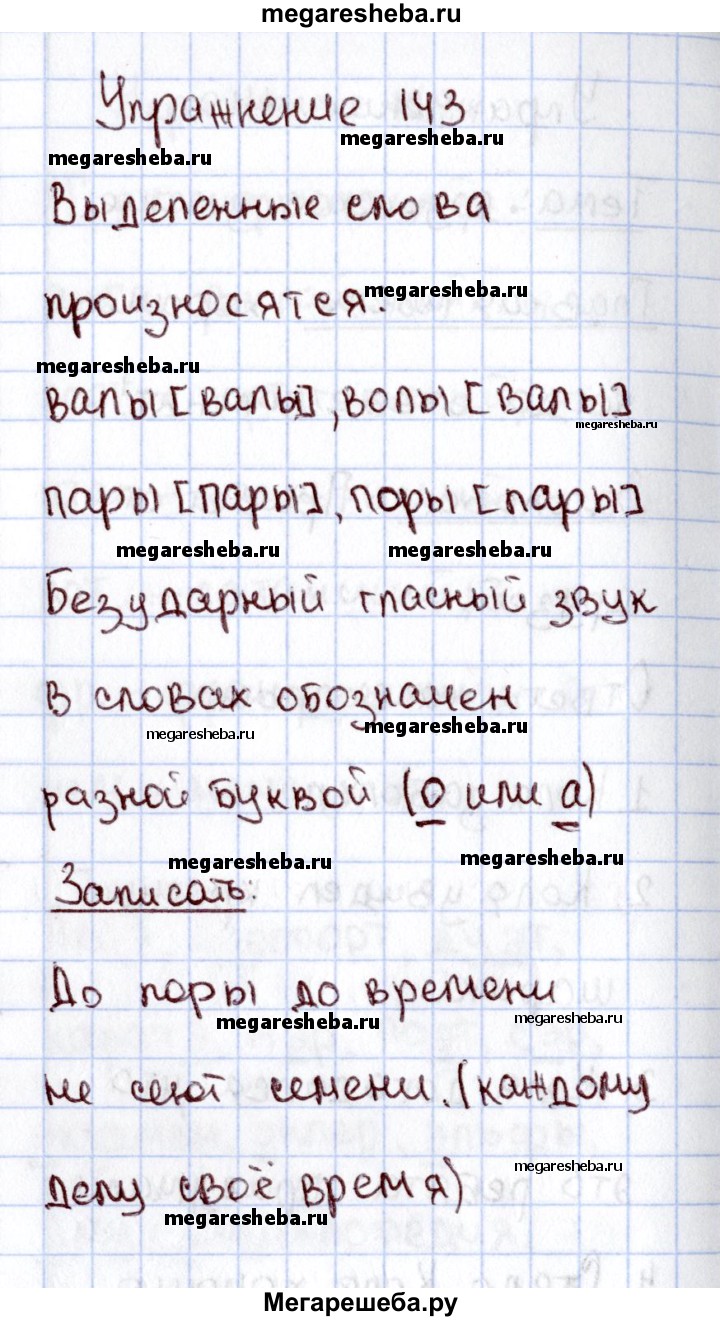 megaresheba.ru
Упражнение 143
megaresheba.ru
megaresheba.ru
Выделенные слова
произносятся:
megaresheba.ru
megaresheba.ru
валы [валы], волы [валы]
megaresheba.ru
пары [пары], поры [пары]
megaresheba.ru
megaresheba.ru
Безударный гласный звук
в словах обозначен
megaresheba.ru
megaresheba.ru
разной буквой (о или а)
megaresheba.ru
megaresheba.ru
Записать:
До поры до времени
megaresheba.ru
megaresheba.ru
не сеют семени. (каждому
megaresheba.ru
делу своё время)
megaresheba.ru
Мегарешеба.ру